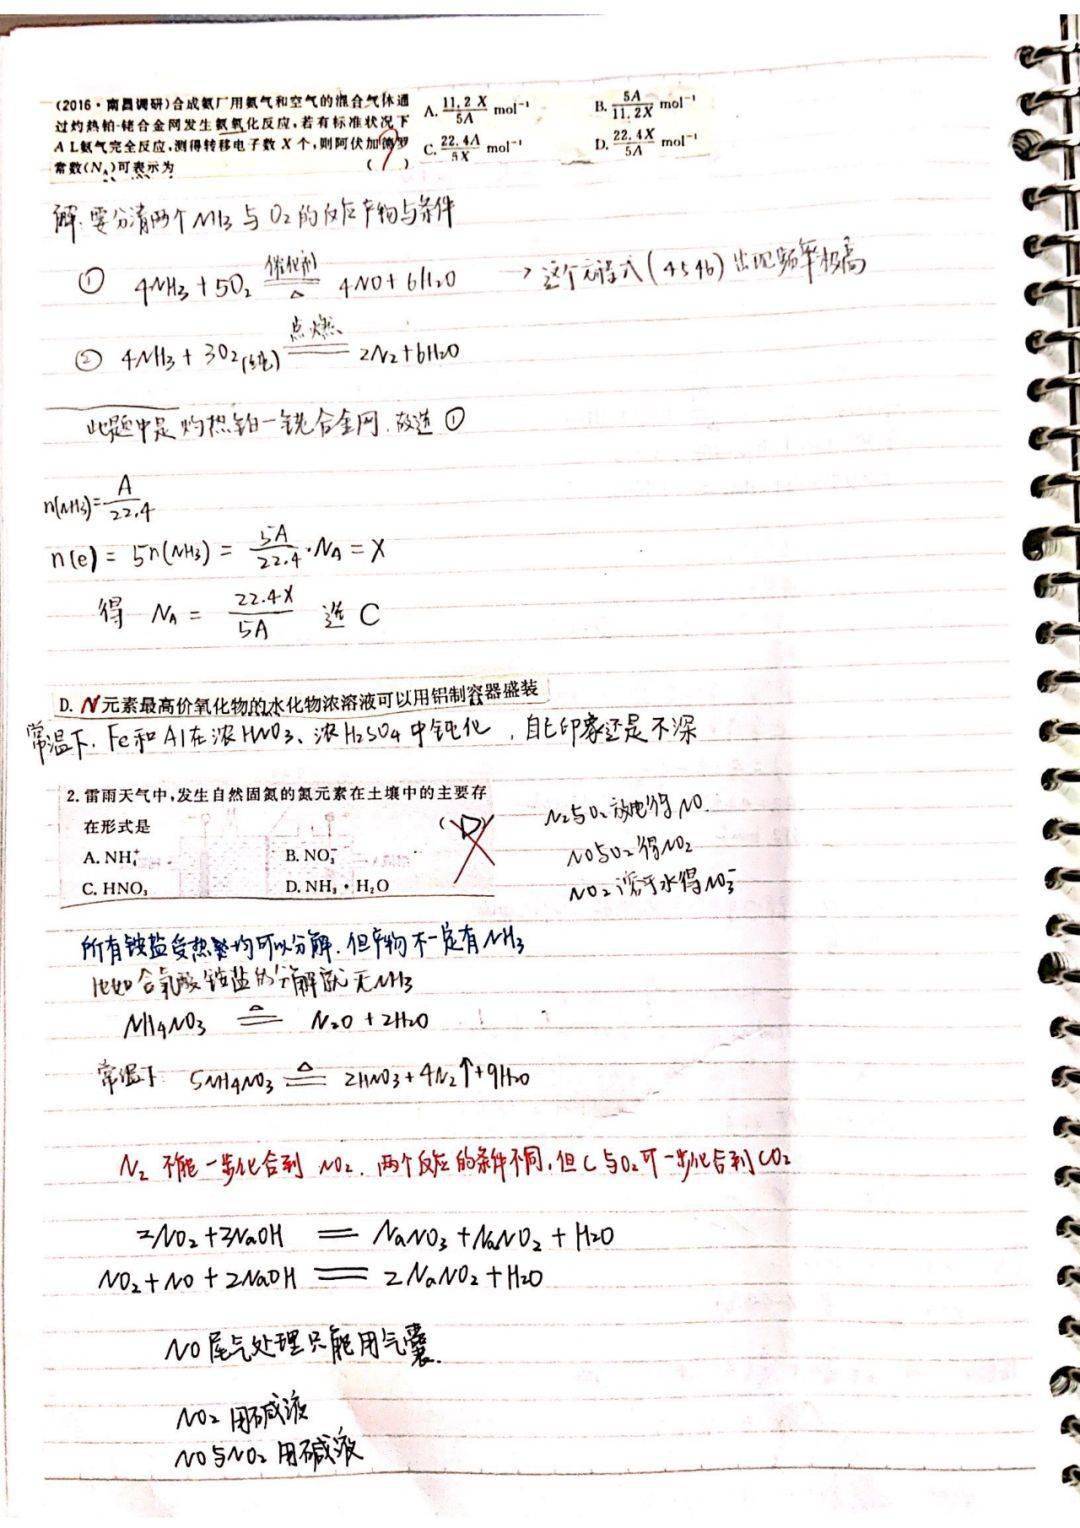 (2016·南昌调研)合成氨厂用氨气和空气的混合气体通
过灼热铂-铑合金网发生氨氧化反应,若有标准状况下
A L氨气完全反应,测得转移电子数 X 个,则阿伏加德罗
常数(N_A)可表示为 ( )
A. 11.2X/5A mol⁻¹ B. 5A/11.2X mol⁻¹
C. 22.4A/5X mol⁻¹ D. 22.4X/5A mol⁻¹
解:要分清两个NH3与O2的反应产物与条件
① 4NH3+5O2 催化剂 ══ △ 4NO+6H2O → 这个方程式(4546)出现频率极高
② 4NH3+3O2(纯) 点燃 ══ 2N2+6H2O
此题中是灼热铂一铑合金网.故选①
n(NH3)=A/22.4
n(e)=5n(NH3)=5A/22.4·NA=X
得 NA=22.4X/5A 选 C
D. N元素最高价氧化物的水化物浓溶液可以用铝制容器盛装
常温下.Fe和Al在浓HNO3、浓H2SO4中钝化,印象还是不深
2. 雷雨天气中,发生自然固氮的氮元素在土壤中的主要存
在形式是 (D)
A. NH₄⁺ B. NO₃⁻
C. HNO₃ D. NH₃·H₂O
N2与O2放电得NO.
NO与O2得NO2
NO2溶于水得NO3⁻
所有铵盐受热均可以分解.但产物不一定有NH3
比如含氧酸铵盐的分解就无NH3
NH4NO3 △══ N2O+2H2O
常温下 5NH4NO3 △══ 2HNO3+4N2↑+9H2O
N2 不能一步化合到 NO2.两个反应的条件不同,但C与O2可一步化合到CO2
2NO2+2NaOH ══ NaNO3+NaNO2+H2O
NO2+NO+2NaOH ══ 2NaNO2+H2O
NO尾气处理只能用气囊.
NO2 用碱液
NO与NO2 用碱液